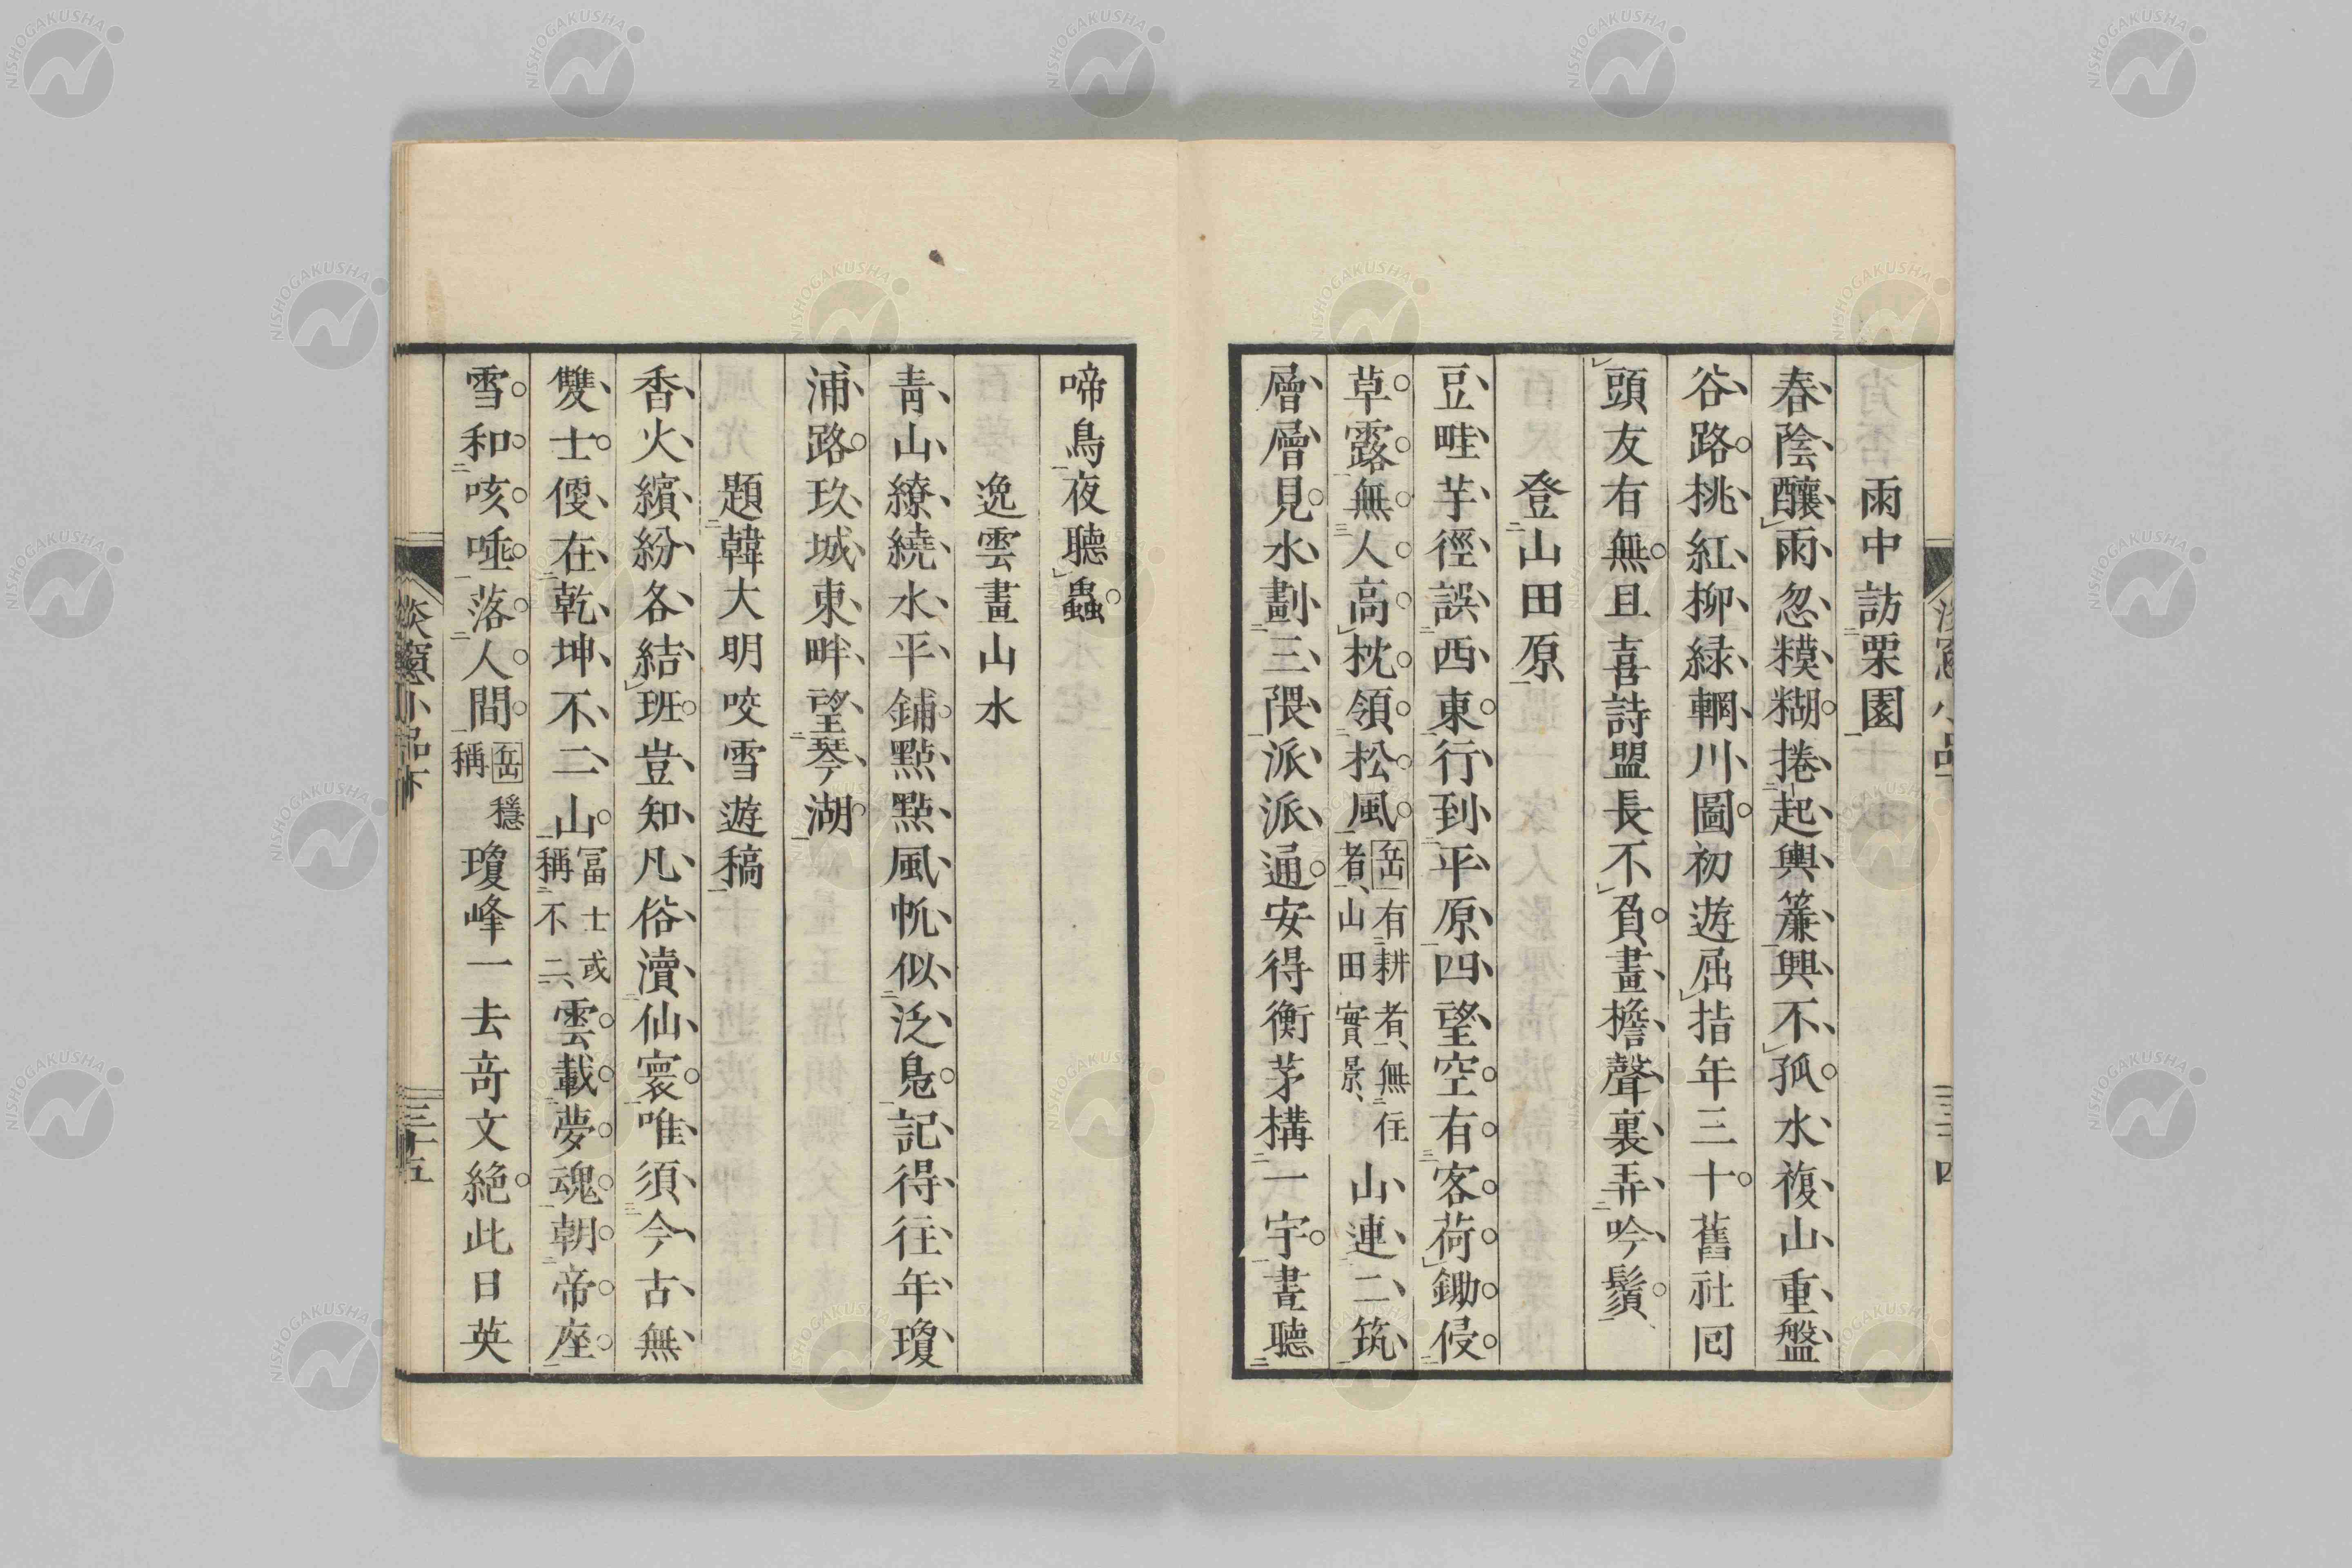 雨中訪栗園
春陰釀雨忽糢糊捲起輿簾興不孤水複山重盤
谷路桃紅柳緑輞川圖初遊屈指年三十舊社囘
頭友有無且喜詩盟長不負畫檐聲裏弄吟鬚
登山田原
豆畦芋徑誤西東行到平原四望空有客荷鋤侵
草露無人高枕領松風岳有耕者無住者山田實景山連二筑
層層見水劃三隈派派通安得衡茅構一宇晝聽
啼鳥夜聽蟲
逸雲畫山水
青山繚繞水平鋪點點風帆似泛鳧記得往年瓊
浦路玖城東畔望琴湖
題韓大明咬雪遊稿
香火繽紛各結班豈知凡俗瀆仙寰唯須今古無
雙士便在乾坤不二山冨士或稱不二雲載夢魂朝帝座
雪和咳唾落人間岳穩稱瓊峰一去竒文絶此日英
窻小品下
三十五
三十四
NISHOGAKUSHA